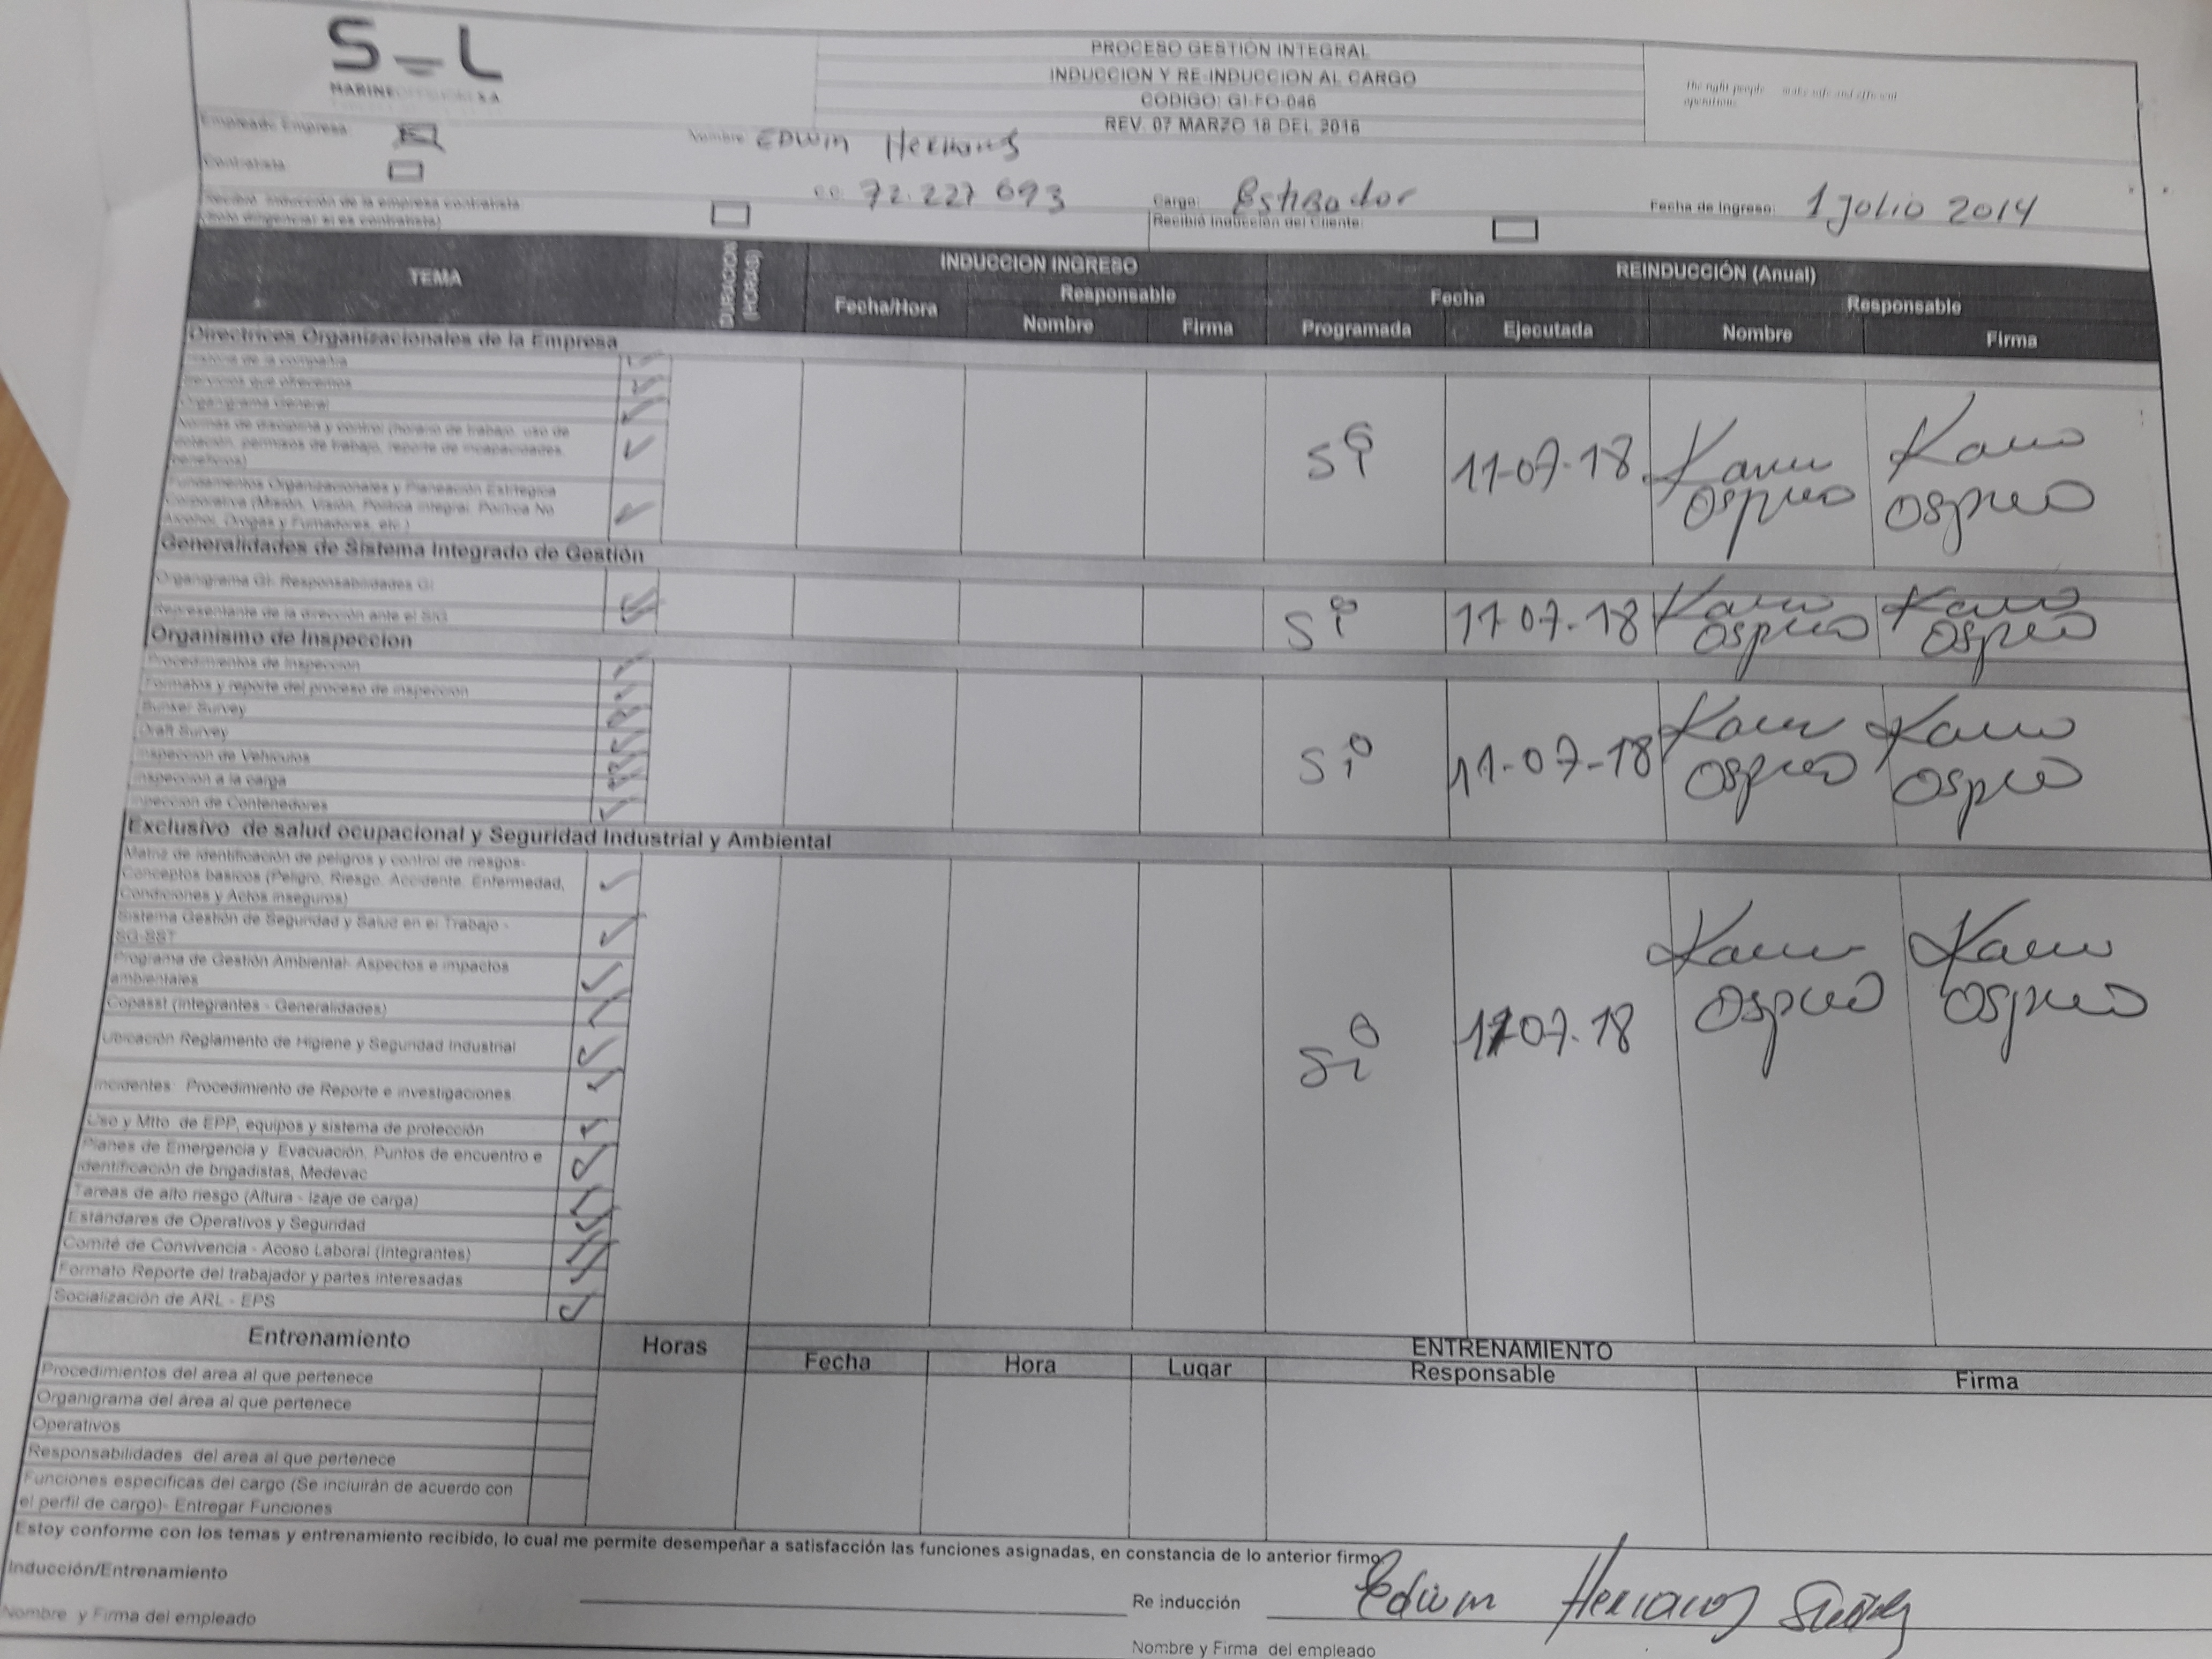 S L
MARINE S.A
PROCESO GESTIÓN INTEGRAL
INDUCCION Y RE-INDUCCION AL CARGO
CODIGO: GI-FO-046
REV. 07 MARZO 18 DEL 2016
The right people make safe and efficient
operations
Empleado Empresa
Nombre: EDWIN
Contratista
cc. 72.227 693
Cargo: Estibador
Fecha de Ingreso: 1 Julio 2014
Recibió Inducción de la empresa contratista
(Solo diligenciar si es contratista)
Recibió Inducción del Cliente:
TEMA
DURACION (HORAS)
INDUCCION INGRESO
REINDUCCIÓN (Anual)
Fecha/Hora
Responsable
Fecha
Responsable
Nombre Firma Programada Ejecutada Nombre Firma
Directrices Organizacionales de la Empresa
Historia de la compañía
Servicios que ofrecemos
Organigrama General
Normas de disciplina y control (horario de trabajo, uso de
dotación, permisos de trabajo, reporte de incapacidades,
beneficios)
Si 11-07-18
Fundamentos Organizacionales y Planeación Estrtegica
Corporativa (Misión, Visión, Política Integral, Política No
Alcohol, Drogas y Fumadores, etc.)
Generalidades de Sistema Integrado de Gestión
Organigrama GI- Responsabilidades GI
Representante de la dirección ante el SIG
Si 11-07-18
Organismo de Inspeccion
Procedimientos de Inspeccion
Formatos y reporte del proceso de inspección
Bunker Survey
Draft Survey
Inspeccion de Vehiculos
Inspección a la carga
Inpeccion de Contenedores
Si 11-07-18
Exclusivo de salud ocupacional y Seguridad Industrial y Ambiental
Matriz de identificación de peligros y control de riesgos-
Conceptos basicos (Peligro, Riesgo, Accidente, Enfermedad,
Condiciones y Actos inseguros)
Sistema Gestión de Seguridad y Salud en el Trabajo -
SG-SST
Programa de Gestión Ambiental- Aspectos e impactos
ambientales
Copasst (integrantes - Generalidades)
Ubicación Reglamento de Higiene y Seguridad Industrial
Si 11-07-18
Incidentes: Procedimiento de Reporte e investigaciones.
Uso y Mtto de EPP, equipos y sistema de protección
Planes de Emergencia y Evacuación. Puntos de encuentro e
identificación de brigadistas, Medevac
Tareas de alto riesgo (Altura - Izaje de carga)
Estándares de Operativos y Seguridad
Comité de Convivencia - Acoso Laboral (Integrantes)
Formato Reporte del trabajador y partes interesadas
Socialización de ARL - EPS
Entrenamiento
Horas
ENTRENAMIENTO
Fecha Hora Lugar Responsable Firma
Procedimientos del area al que pertenece
Organigrama del área al que pertenece
Operativos
Responsabilidades del area al que pertenece
Funciones especificas del cargo (Se incluirán de acuerdo con
el perfil de cargo)- Entregar Funciones
Estoy conforme con los temas y entrenamiento recibido, lo cual me permite desempeñar a satisfacción las funciones asignadas, en constancia de lo anterior firmo
Inducción/Entrenamiento
Re inducción Edwin
Nombre y Firma del empleado
Nombre y Firma del empleado